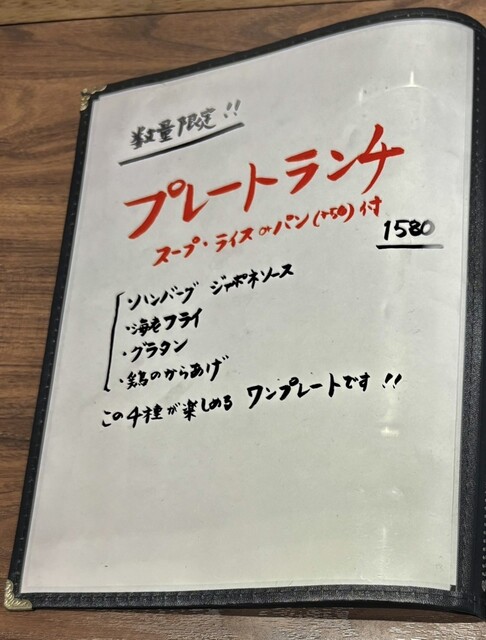 数量限定!!
プレートランチ
スープ・ライス or パン(+50)付
1580
・ハンバーグ ジャポネソース
・海老フライ
・グラタン
・鶏のからあげ
この4種が楽しめる ワンプレートです!!